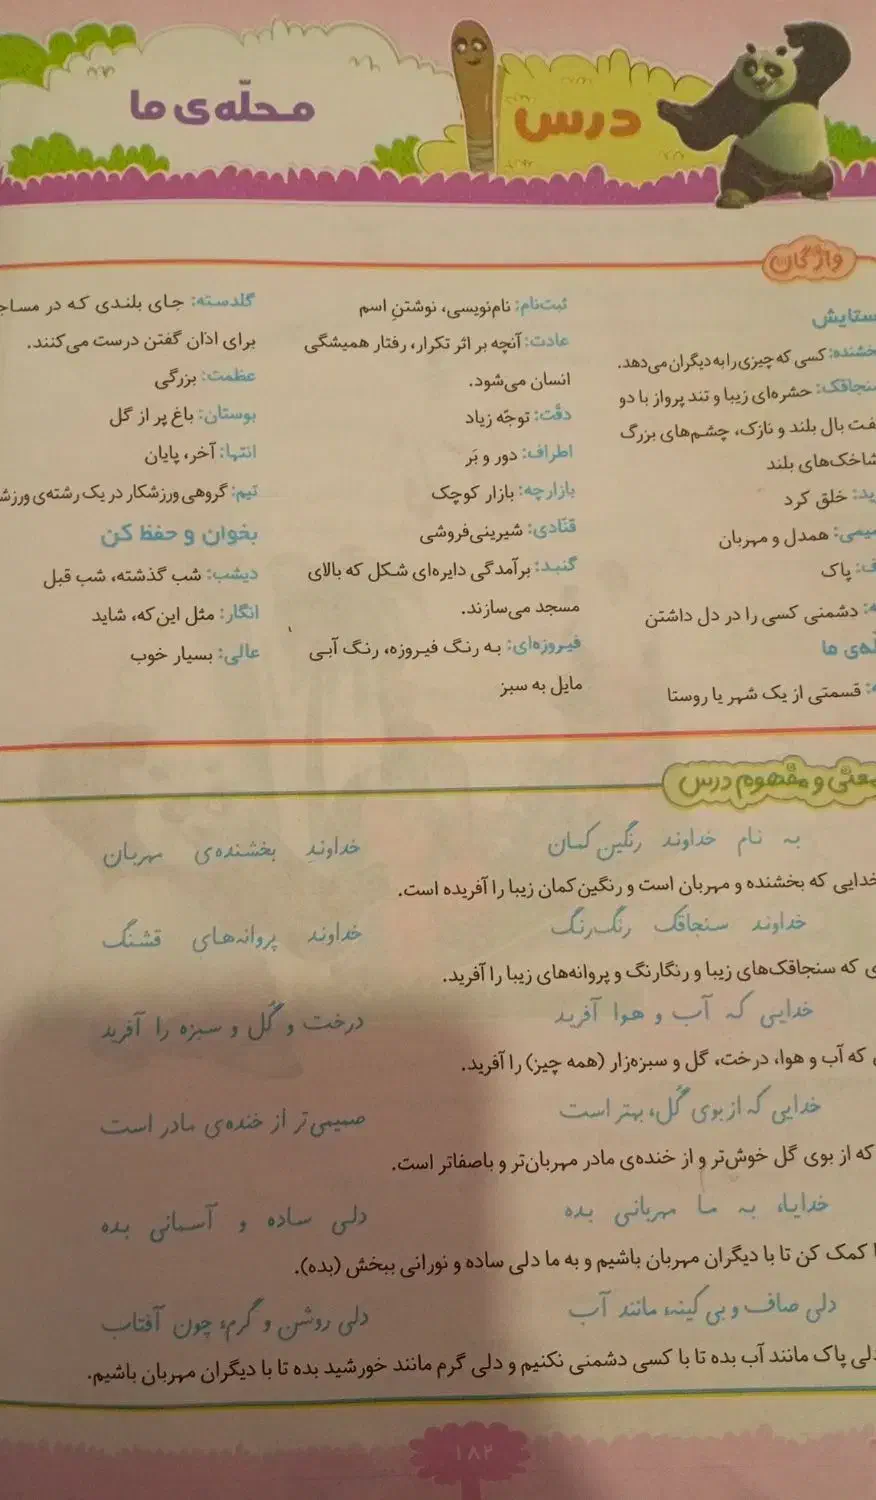 درس ۱
محلّه‌ی ما
واژگان
ستایش
خشنده: کسی که چیزی را به دیگران می‌دهد.
سنجاقک: حشره‌ای زیبا و تند پرواز با دو
فت بال بلند و نازک، چشم‌های بزرگ
شاخک‌های بلند
ید: خلق کرد
میمی: همدل و مهربان
ف: پاک
ه: دشمنی کسی را در دل داشتن
لّه‌ی ما
ه: قسمتی از یک شهر یا روستا
ثبت‌نام: نام‌نویسی، نوشتنِ اسم
عادت: آنچه بر اثر تکرار، رفتار همیشگی
انسان می‌شود.
دقّت: توجّه زیاد
اطراف: دور و بَر
بازارچه: بازار کوچک
قنّادی: شیرینی‌فروشی
گنبد: برآمدگی دایره‌ای شکل که بالای
مسجد می‌سازند.
فیروزه‌ای: به رنگ فیروزه، رنگ آبی
مایل به سبز
گلدسته: جای بلندی که در مساج
برای اذان گفتن درست می‌کنند.
عظمت: بزرگی
بوستان: باغ پر از گل
انتها: آخر، پایان
تیم: گروهی ورزشکار در یک رشته‌ی ورزش
بخوان و حفظ کن
دیشب: شب گذشته، شب قبل
انگار: مثل این‌که، شاید
عالی: بسیار خوب
معنی و مفهوم درس
به نام خداوند رنگین کمان خداوندِ بخشنده‌ی مهربان
خدایی که بخشنده و مهربان است و رنگین‌کمان زیبا را آفریده است.
خداوند سنجاقک رنگ‌رنگ خداوند پروانه‌های قشنگ
ی که سنجاقک‌های زیبا و رنگارنگ و پروانه‌های زیبا را آفرید.
خدایی که آب و هوا آفرید درخت و گُل و سبزه را آفرید
که آب و هوا، درخت، گل و سبزه‌زار (همه چیز) را آفرید.
خدایی که از بوی گُل، بهتر است صمیمی‌تر از خنده‌ی مادر است
که از بوی گل خوش‌تر و از خنده‌ی مادر مهربان‌تر و باصفاتر است.
خدایا، به ما مهربانی بده دلی ساده و آسمانی بده
ا کمک کن تا با دیگران مهربان باشیم و به ما دلی ساده و نورانی ببخش (بده).
دلی صاف و بی کینه، مانند آب دلی روشن و گرم، چون آفتاب
دلی پاک مانند آب بده تا با کسی دشمنی نکنیم و دلی گرم مانند خورشید بده تا با دیگران مهربان باشیم.
۱۸۲